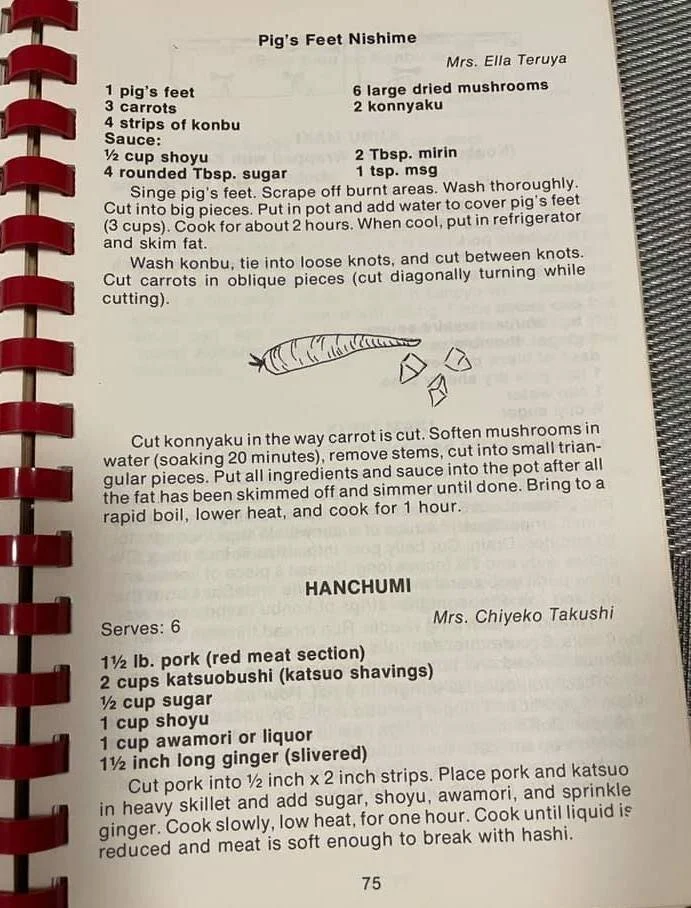 Pig's Feet Nishime
Mrs. Ella Teruya
1 pig's feet 6 large dried mushrooms
3 carrots 2 konnyaku
4 strips of konbu
Sauce:
½ cup shoyu 2 Tbsp. mirin
4 rounded Tbsp. sugar 1 tsp. msg
Singe pig's feet. Scrape off burnt areas. Wash thoroughly.
Cut into big pieces. Put in pot and add water to cover pig's feet
(3 cups). Cook for about 2 hours. When cool, put in refrigerator
and skim fat.
Wash konbu, tie into loose knots, and cut between knots.
Cut carrots in oblique pieces (cut diagonally turning while
cutting).
Cut konnyaku in the way carrot is cut. Soften mushrooms in
water (soaking 20 minutes), remove stems, cut into small trian-
gular pieces. Put all ingredients and sauce into the pot after all
the fat has been skimmed off and simmer until done. Bring to a
rapid boil, lower heat, and cook for 1 hour.
HANCHUMI
Serves: 6 Mrs. Chiyeko Takushi
1½ lb. pork (red meat section)
2 cups katsuobushi (katsuo shavings)
½ cup sugar
1 cup shoyu
1 cup awamori or liquor
1½ inch long ginger (slivered)
Cut pork into ½ inch x 2 inch strips. Place pork and katsuo
in heavy skillet and add sugar, shoyu, awamori, and sprinkle
ginger. Cook slowly, low heat, for one hour. Cook until liquid is
reduced and meat is soft enough to break with hashi.
75